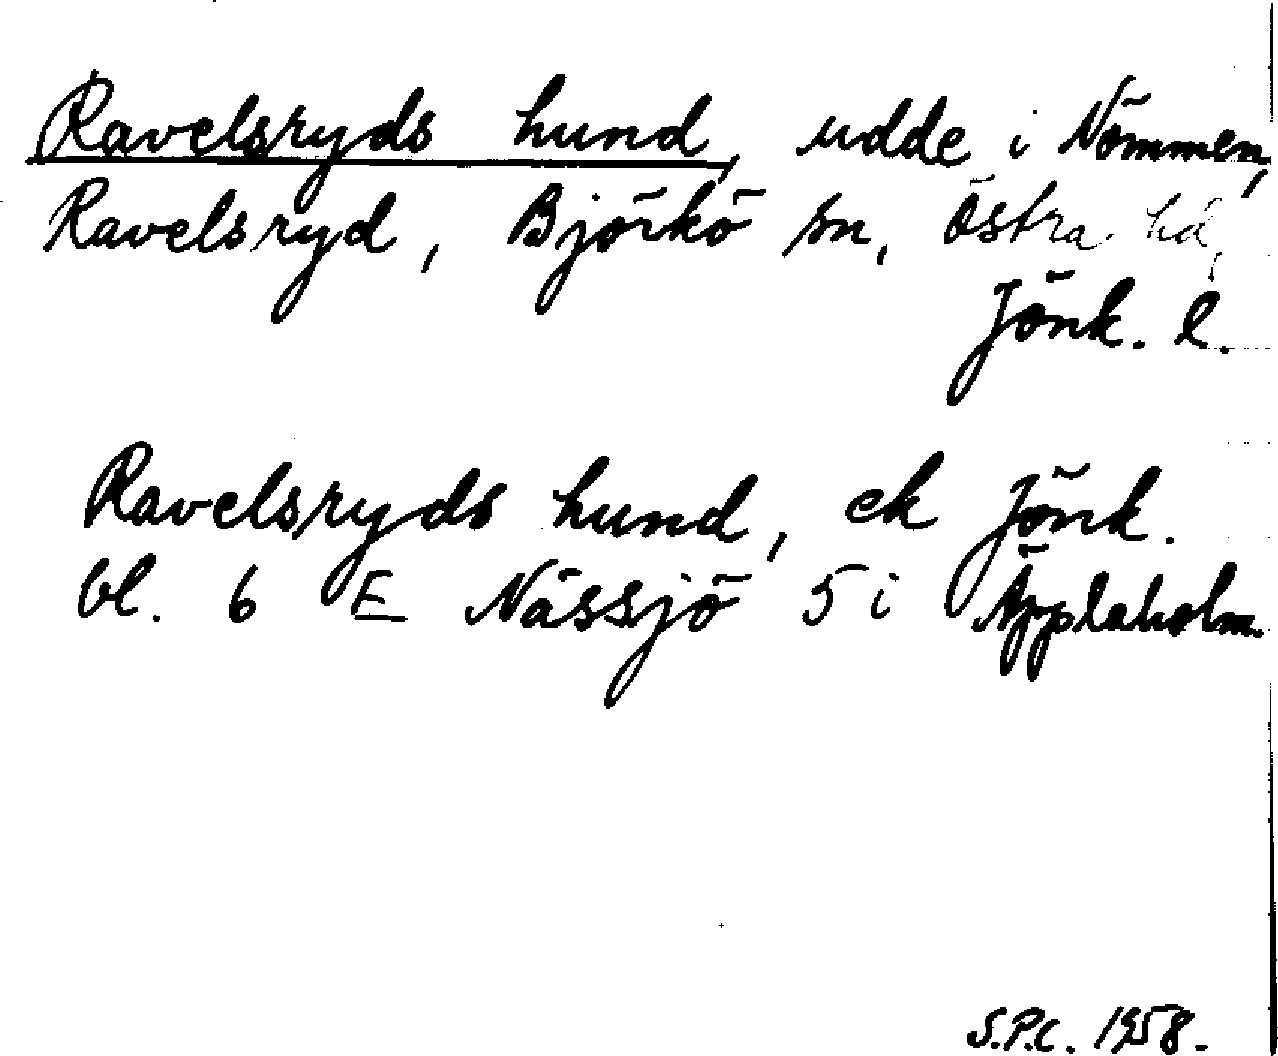 Ravelsryds hund, udde i Nömmen,
Ravelsryd, Björkö sn, Östra hd,
Jönk. l.
Ravelsryds hund, ek Jönk.
bl. 6 E Nässjö 5 i Äpplaholm.
S.P.C. 1958.